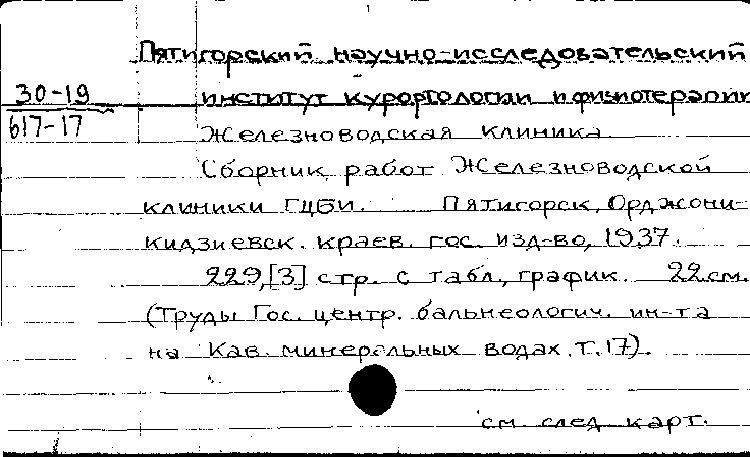 Пятигорский научно-исследовательский
30-19 институт курортологии и физиотерапии
617-17 Железноводская клиника
Сборник работ Железноводской
клиники ГЦБИ. Пятигорск, Орджони-
кидзиевск. краев. гос. изд-во, 1937.
229,[3] стр. с табл., график. 22 см.
(Труды Гос. центр. бальнеологич. ин-та
на Кав. минеральных водах. Т. 17).
см. след. карт.